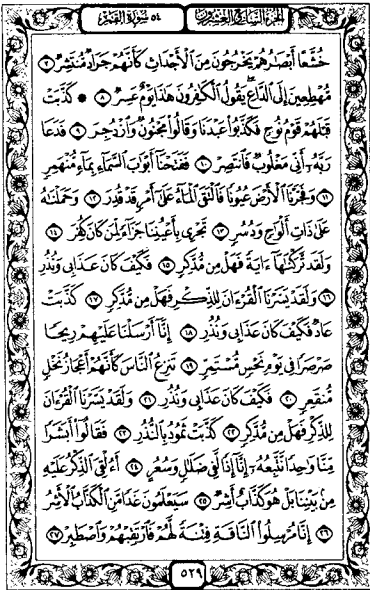 الجزء السابع والعشرون ٥٤ سورة القمر
خُشَّعًا أَبْصَٰرُهُمْ يَخْرُجُونَ مِنَ ٱلْأَجْدَاثِ كَأَنَّهُمْ جَرَادٌ مُّنتَشِرٌ ٧
مُّهْطِعِينَ إِلَى ٱلدَّاعِ ۖ يَقُولُ ٱلْكَٰفِرُونَ هَٰذَا يَوْمٌ عَسِرٌ ٨ ۞ كَذَّبَتْ
قَبْلَهُمْ قَوْمُ نُوحٍ فَكَذَّبُوا۟ عَبْدَنَا وَقَالُوا۟ مَجْنُونٌ وَٱزْدُجِرَ ٩ فَدَعَا
رَبَّهُۥٓ أَنِّى مَغْلُوبٌ فَٱنتَصِرْ ١٠ فَفَتَحْنَآ أَبْوَٰبَ ٱلسَّمَآءِ بِمَآءٍ مُّنْهَمِرٍ
١١ وَفَجَّرْنَا ٱلْأَرْضَ عُيُونًا فَٱلْتَقَى ٱلْمَآءُ عَلَىٰٓ أَمْرٍ قَدْ قُدِرَ ١٢ وَحَمَلْنَٰهُ
عَلَىٰ ذَاتِ أَلْوَٰحٍ وَدُسُرٍ ١٣ تَجْرِى بِأَعْيُنِنَا جَزَآءً لِّمَن كَانَ كُفِرَ ١٤
وَلَقَد تَّرَكْنَٰهَآ ءَايَةً فَهَلْ مِن مُّدَّكِرٍ ١٥ فَكَيْفَ كَانَ عَذَابِى وَنُذُرِ
١٦ وَلَقَدْ يَسَّرْنَا ٱلْقُرْءَانَ لِلذِّكْرِ فَهَلْ مِن مُّدَّكِرٍ ١٧ كَذَّبَتْ
عَادٌ فَكَيْفَ كَانَ عَذَابِى وَنُذُرِ ١٨ إِنَّآ أَرْسَلْنَا عَلَيْهِمْ رِيحًا
صَرْصَرًا فِى يَوْمِ نَحْسٍ مُّسْتَمِرٍّ ١٩ تَنزِعُ ٱلنَّاسَ كَأَنَّهُمْ أَعْجَازُ نَخْلٍ
مُّنقَعِرٍ ٢٠ فَكَيْفَ كَانَ عَذَابِى وَنُذُرِ ٢١ وَلَقَدْ يَسَّرْنَا ٱلْقُرْءَانَ
لِلذِّكْرِ فَهَلْ مِن مُّدَّكِرٍ ٢٢ كَذَّبَتْ ثَمُودُ بِٱلنُّذُرِ ٢٣ فَقَالُوٓا۟ أَبَشَرًا
مِّنَّا وَٰحِدًا نَّتَّبِعُهُۥٓ إِنَّآ إِذًا لَّفِى ضَلَٰلٍ وَسُعُرٍ ٢٤ أَءُلْقِىَ ٱلذِّكْرُ عَلَيْهِ
مِنۢ بَيْنِنَا بَلْ هُوَ كَذَّابٌ أَشِرٌ ٢٥ سَيَعْلَمُونَ غَدًا مَّنِ ٱلْكَذَّابُ ٱلْأَشِرُ
٢٦ إِنَّا مُرْسِلُوا۟ ٱلنَّاقَةِ فِتْنَةً لَّهُمْ فَٱرْتَقِبْهُمْ وَٱصْطَبِرْ ٢٧
٥٢٩